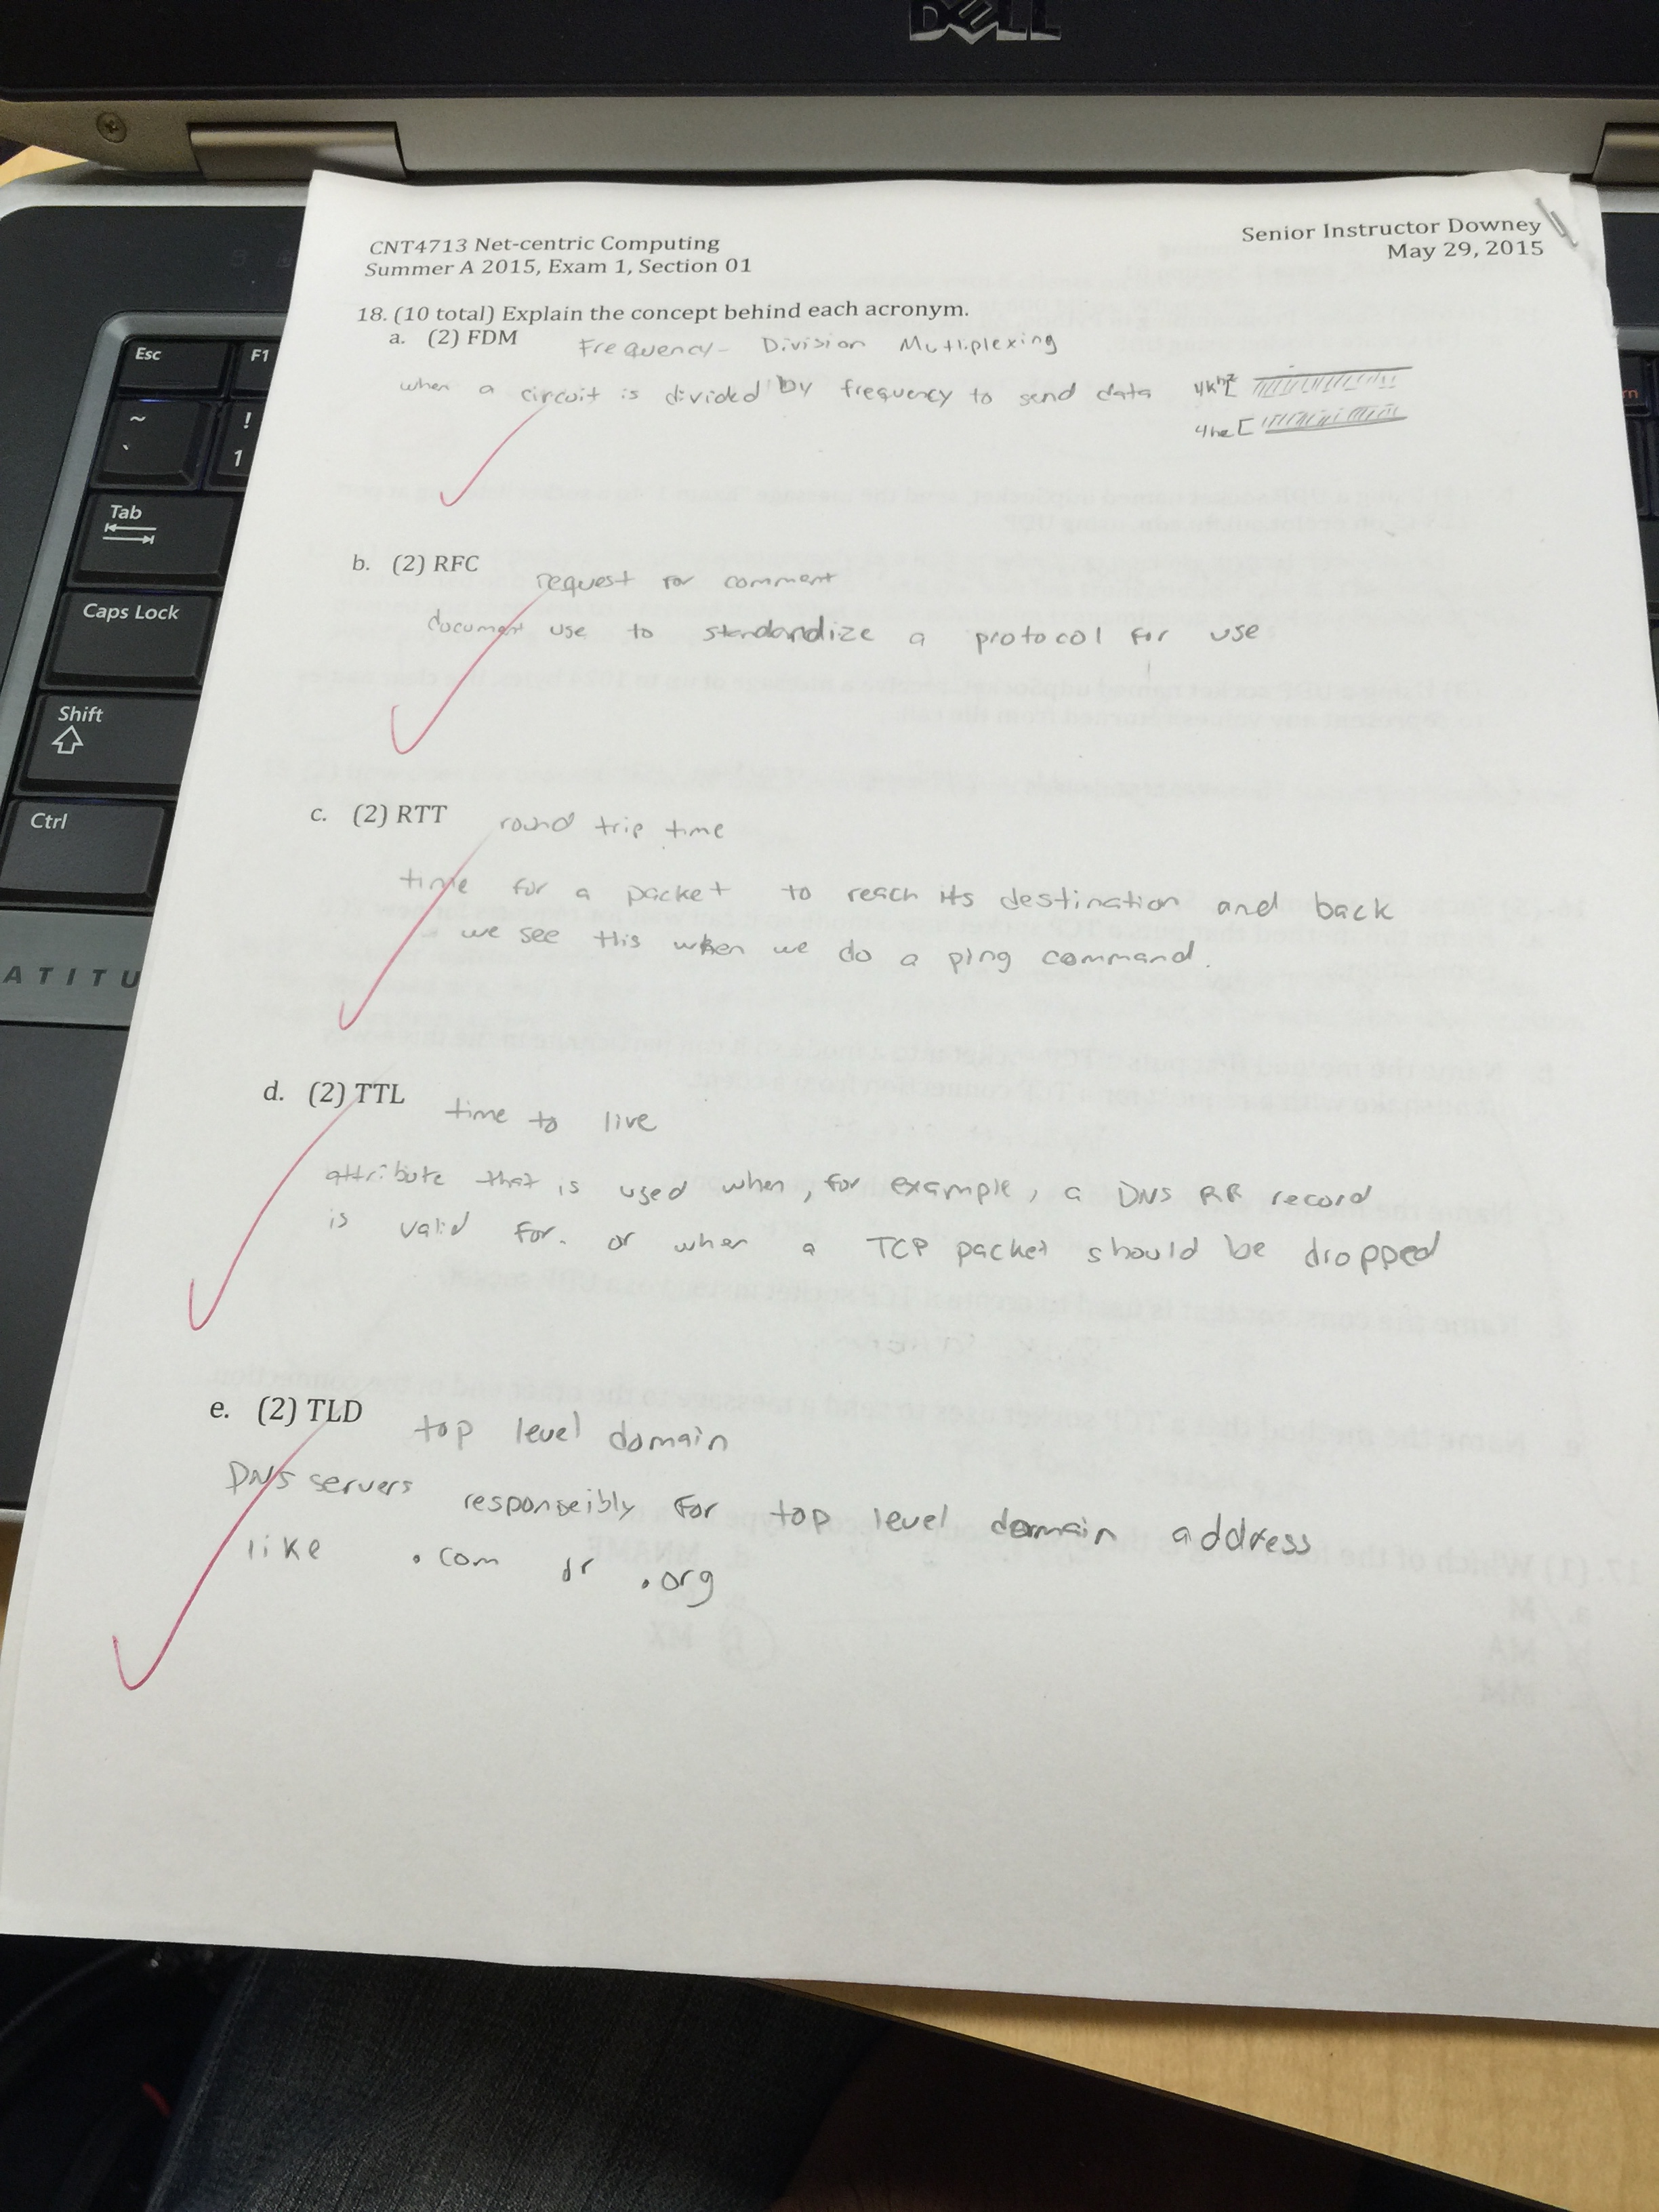 DELL
CNT4713 Net-centric Computing
Summer A 2015, Exam 1, Section 01
Senior Instructor Downey
May 29, 2015
18. (10 total) Explain the concept behind each acronym.
a. (2) FDM Frequency- Division Mutliplexing
when a circuit is divided by frequency to send data
4khz
b. (2) RFC request for comment
document use to standardize a protocol for use
c. (2) RTT round trip time
time for a packet to reach its destination and back
we see this when we do a ping command.
d. (2) TTL time to live
attribute that is used when, for example, a DNS RR record
is valid for. or when a TCP packet should be dropped
e. (2) TLD top level domain
DNS servers responseibly for top level domain address
like .com or .org
Esc
F1
~
`
!
1
Tab
Caps Lock
Shift
Ctrl
ATITU